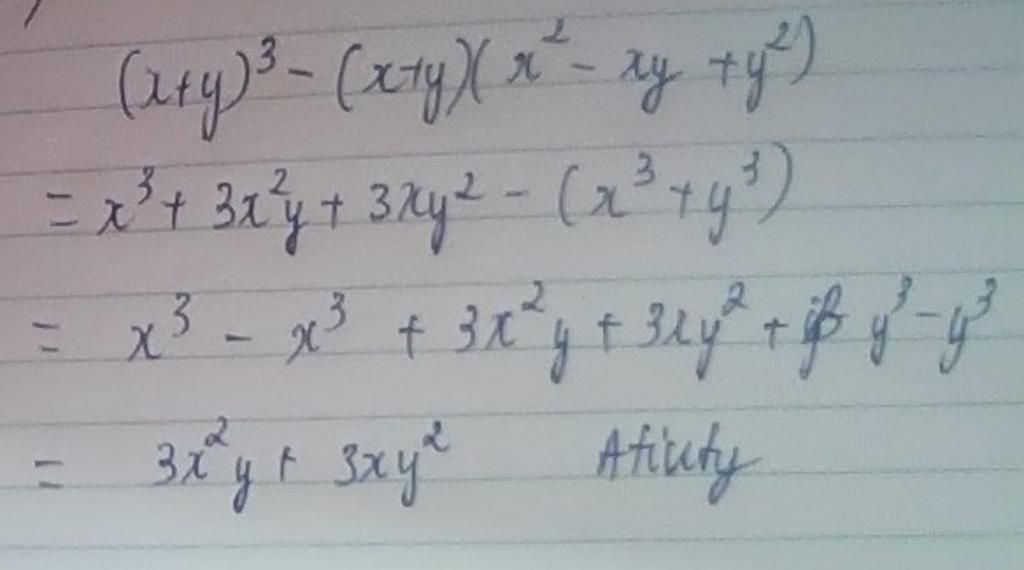 (x+y)³ - (x+y)(x² - xy + y²)
= x³ + 3x²y + 3xy² - (x³ + y³)
= x³ - x³ + 3x²y + 3xy² + y³ - y³
= 3x²y + 3xy²